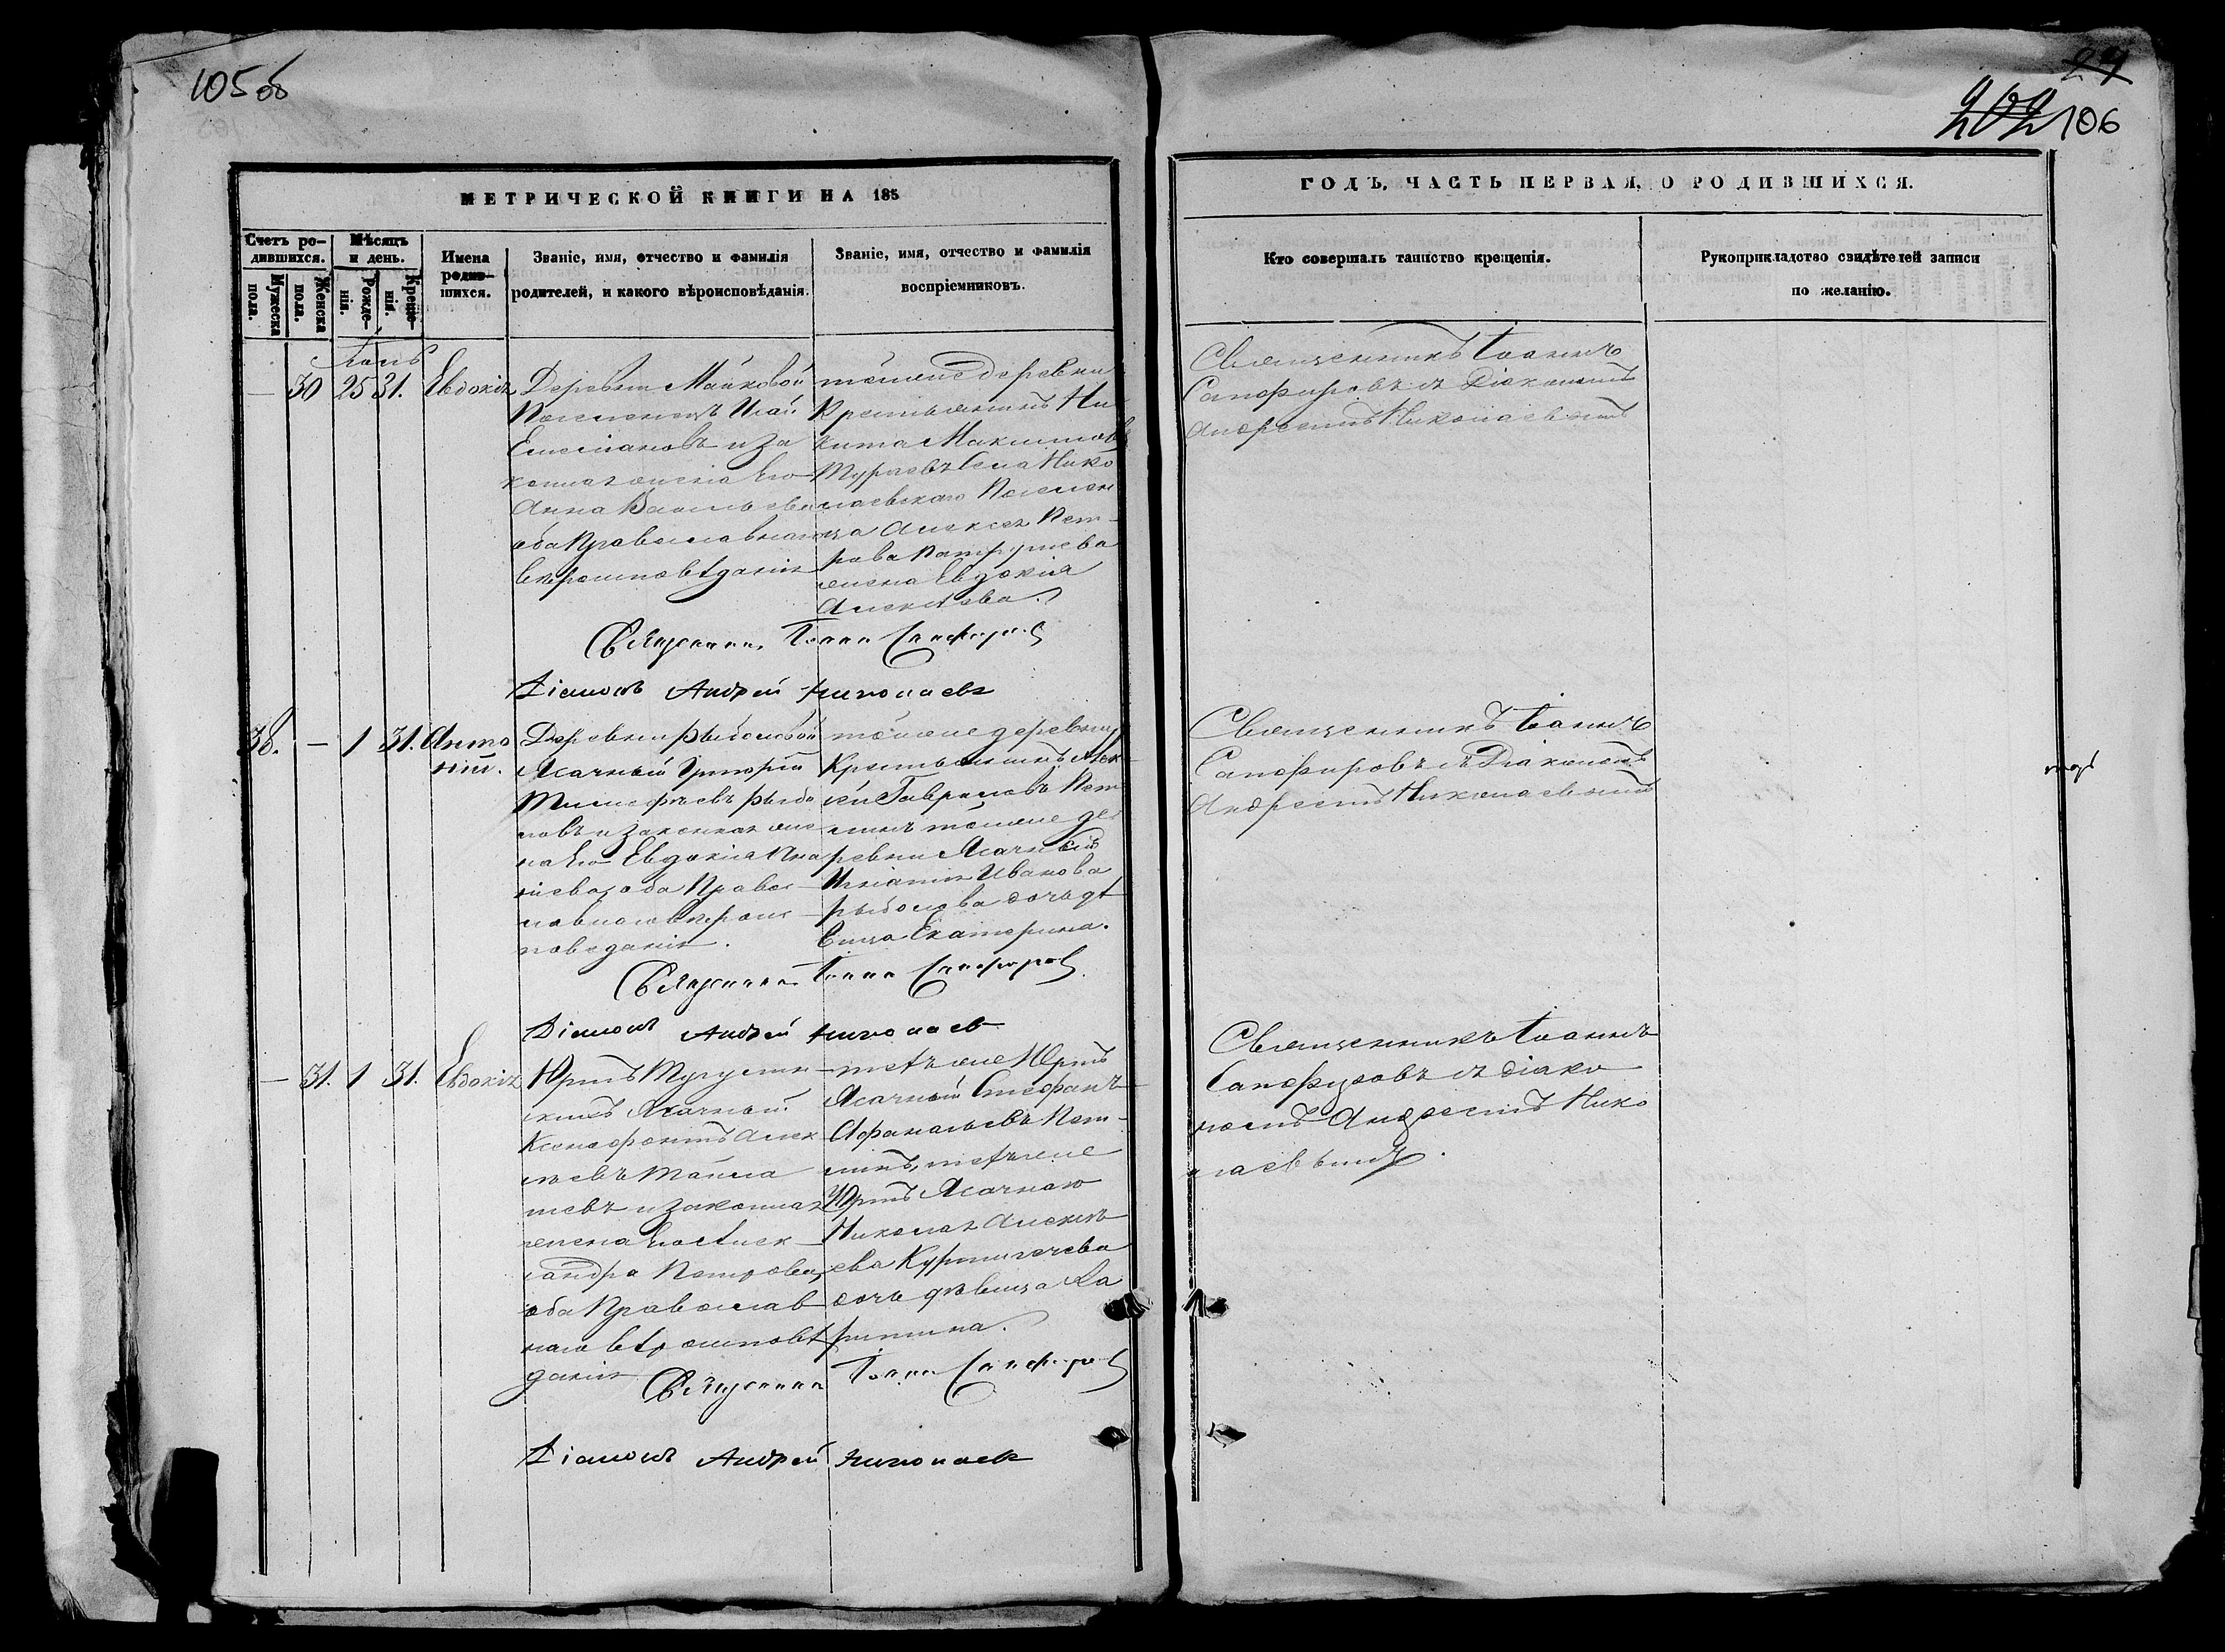 105 об
27
202 106
МЕТРИЧЕСКОЙ КНИГИ НА 185
ГОДЪ, ЧАСТЬ ПЕРВАЯ, О РОДИВШИХСЯ.
Счетъ ро-
дившихся.
Мужеска
пола.
Женска
пола.
Мѣсяцъ
и день.
Рожде-
нія.
Креще-
нія.
Имена
родив-
шихся.
Званіе, имя, отчество и фамилія
родителей, и какого вѣроисповѣданія.
Званіе, имя, отчество и фамилія
воспріемниковъ.
Кто совершалъ таинство крещенія.
Рукоприкладство свидѣтелей записи
по желанію.
— 30 25 31. Евдокія
Деревни Майковой
Поселенецъ
Емелiановъ и за
конная жена Его
Анна Васильева
оба Православнаго
вѣроисповѣданія
тойже деревни
Крестьянинъ Ни
кита Максимовъ
Села Нико
лаевскаго Поселен
ца Алексея Пет-
рова
жена Евдокія
Алексѣева.
Священникъ Іоаннъ
Сапфировъ съ Діакономъ
Андреемъ Николаевымъ
Священникъ Іоаннъ Сапфировъ
Діаконъ Андрей Николаевъ
— 1 31. Анто
ній.
Деревни Рыболовой
Ясачный Григорій
Тимофѣевъ Рыбо
ловъ и законная же
на Его Евдокія
оба Правос-
лавнаго вѣроис-
поведанія.
тойже деревни
Крестьянинъ Алек
сѣй Гавриловъ Пет
линъ тойже де
ревни Ясачнаго
Игнатія Иванова
Рыболова дочь дѣ
вица Екатерина.
Священникъ Іоаннъ
Сапфировъ съ Діакономъ
Андреемъ Николаевымъ
Священникъ Іоаннъ Сапфировъ.
Діаконъ Андрей Николаевъ
— 31. 1 31. Евдокія
Юртъ
скихъ Ясачный
Ксенофонтъ Алек
сѣевъ
и законная
жена Его Алек-
сандра Петрова,
оба Православ-
наго вѣроисповѣ
данія
тѣхъже Юртъ
Ясачный Стефанъ
Афанасьевъ Пет-
линъ, тѣхъже
Юртъ Ясачнаго
Николая Алексѣ-
ева
дочь дѣвица
Священникъ Іоаннъ
Сапфировъ съ діако
номъ Андреемъ Нико
лаевымъ.
Священникъ Іоаннъ Сапфировъ
Діаконъ Андрей Николаевъ